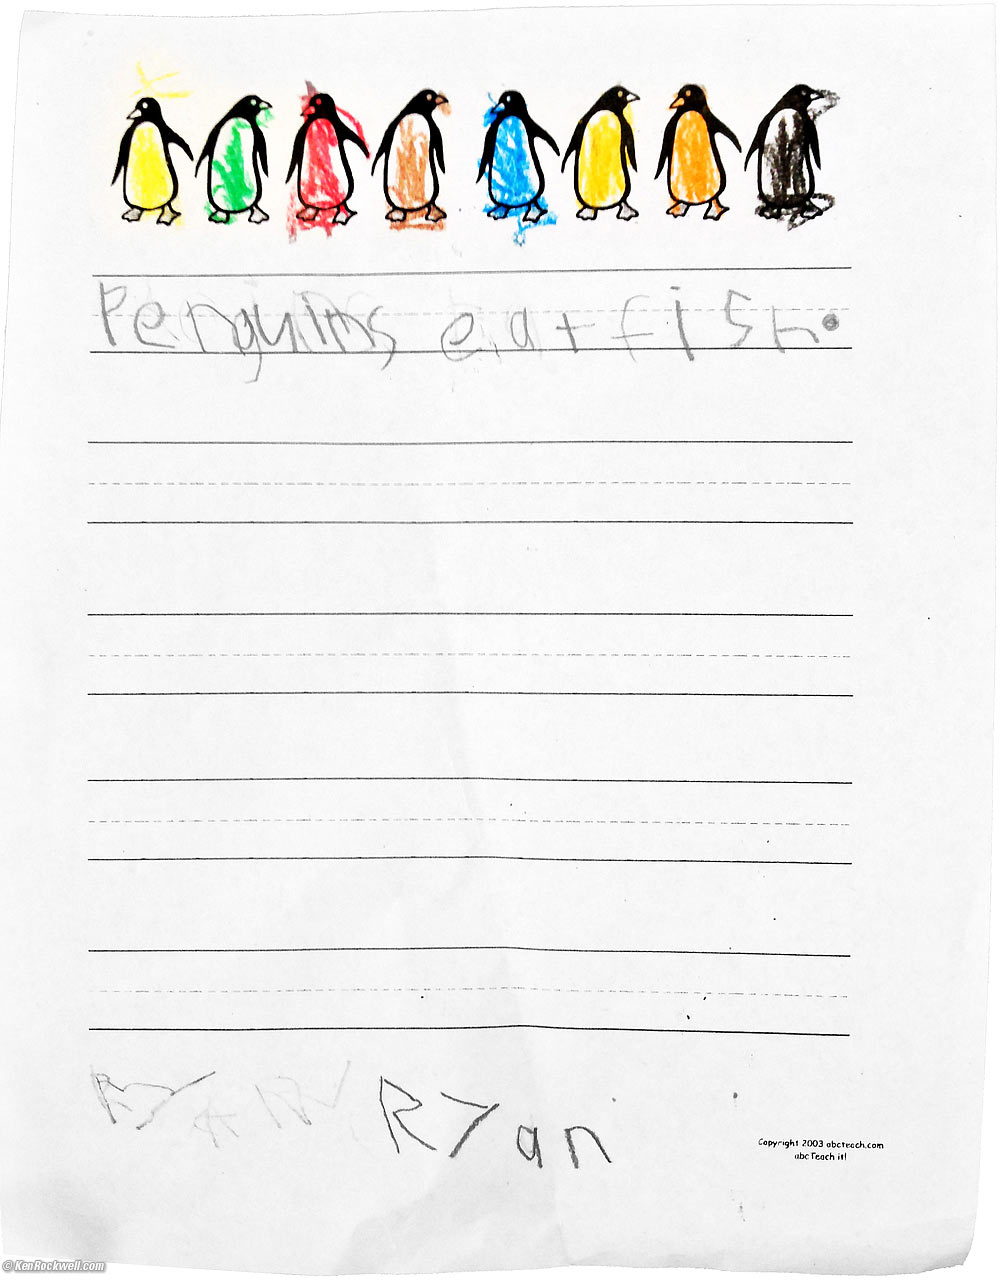 Penguins eat fish.
Ryan
Copyright 2003 abcteach.com
abc Teach it!
© KenRockwell.com